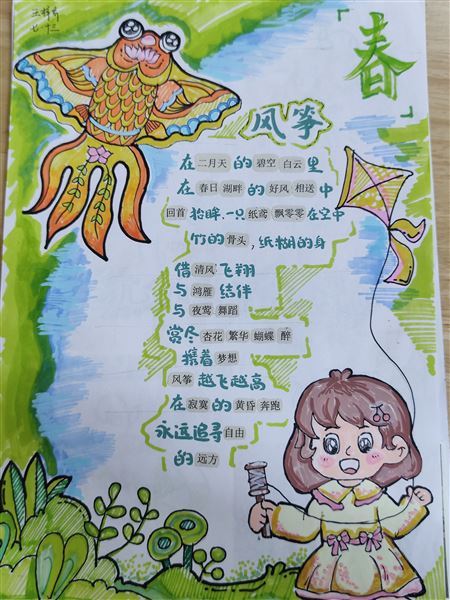 七 十三
春
风筝
在二月天的碧空 白云里
在春日 湖畔的好风 相送中
回首抬眸,一只纸鸢 飘零零在空中
竹的骨头,纸糊的身
借清风飞翔
与鸿雁结伴
与夜莺 舞蹈
赏尽杏花 繁华 蝴蝶 醉
携着梦想
风筝越飞越高
在寂寞的黄昏 奔跑
永远追寻自由
的远方